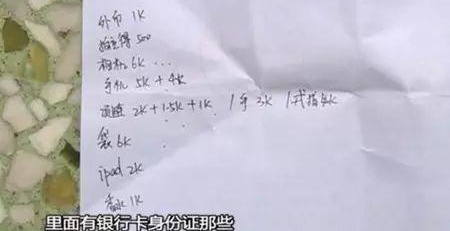 外币 1K
500
相机 6K ...
手机 5K + 4K
项链 2K + 1.5K + 1K / 手 3K / 戒指 K
袋 6K
ipad 2K
香水 1K
里面有银行卡身份证那些